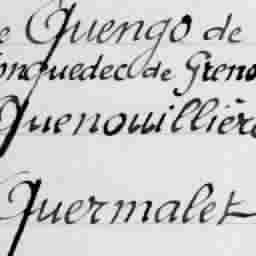 e Quengo de
onquedec de Greno
Quenouillière
Quermalet